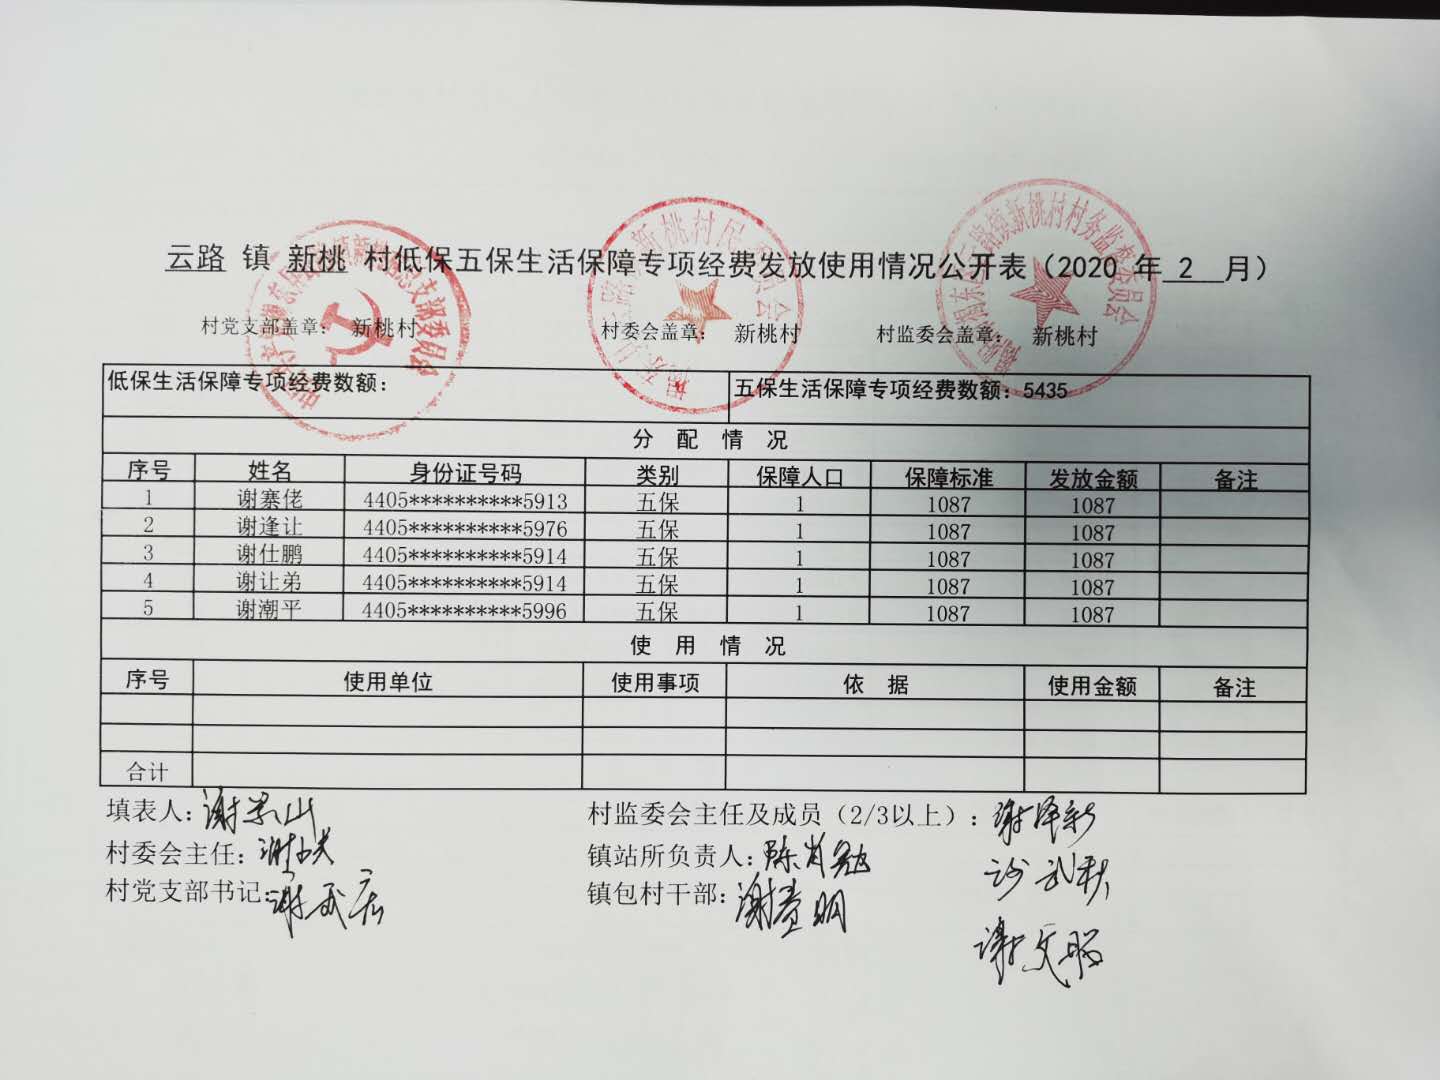 云路 镇 新桃 村低保五保生活保障专项经费发放使用情况公开表（2020 年 2 月）
村党支部盖章： 新桃村 村委会盖章： 新桃村 村监委会盖章： 新桃村
低保生活保障专项经费数额： 五保生活保障专项经费数额：5435
分 配 情 况
序号 姓名 身份证号码 类别 保障人口 保障标准 发放金额 备注
1 谢寨佬 4405**********5913 五保 1 1087 1087
2 谢逢让 4405**********5976 五保 1 1087 1087
3 谢仕鹏 4405**********5914 五保 1 1087 1087
4 谢让弟 4405**********5914 五保 1 1087 1087
5 谢潮平 4405**********5996 五保 1 1087 1087
使 用 情 况
序号 使用单位 使用事项 依 据 使用金额 备注
合计
填表人： 村监委会主任及成员（2/3以上）：谢泽彩
村委会主任： 镇站所负责人：陈肖勉
村党支部书记：谢武宏 镇包村干部：谢贵明
谢文聪